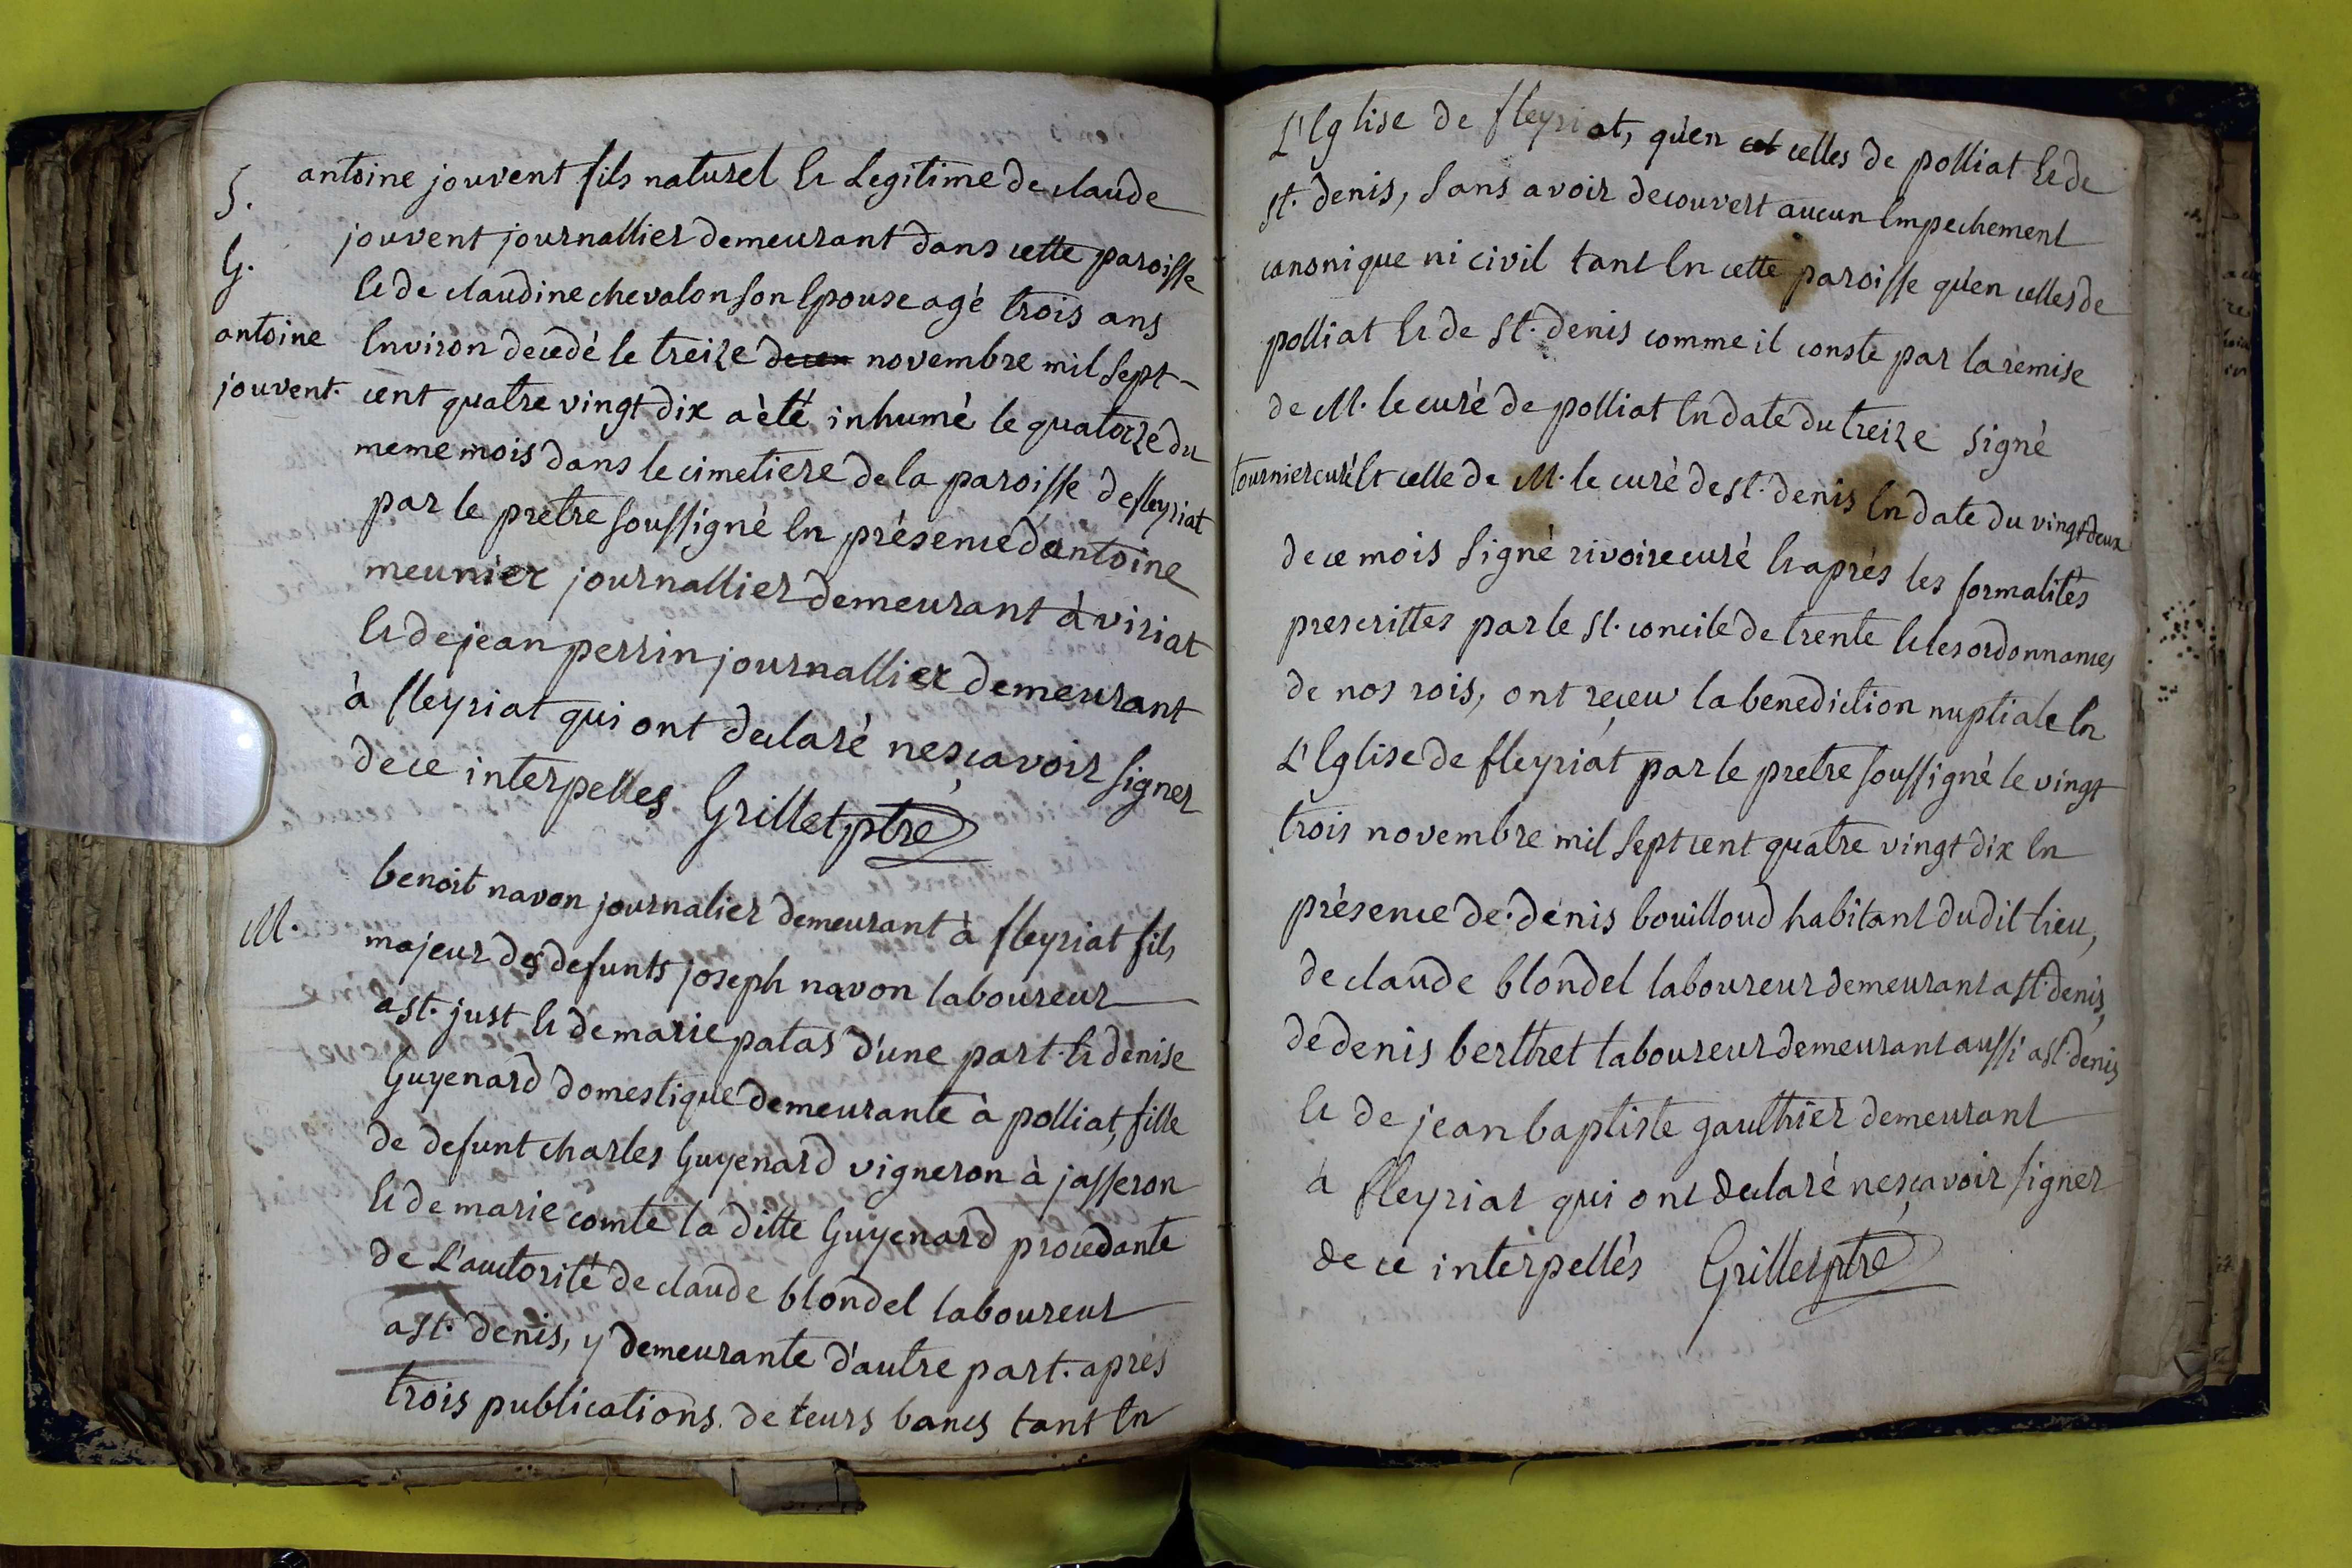 S.
G.
antoine
jouvent.
antoine jouvent fils naturel et Legitime de claude
jouvent journallier demeurant dans cette paroisse
et de claudine chevalon son Epouse agé trois ans
Environ decedé le treize decem novembre mil sept-
cent quatre vingt dix a èté inhumé le quatorze du
meme mois dans le cimetiere de la paroisse de fleyriat
par le pretre soussigné En présence dantoine
meunier journallier demeurant à viriat
et de jean perrin journallier demeurant
à fleyriat qui ont declaré nesçavoir signer
de ce interpelles Grillet ptre
M.
benoit navon journalier demeurant à fleyriat fils
majeur des defunts joseph navon laboureur
a st. just et de marie patas d'une part. et denise
Guyenard domestique demeurante à polliat, fille
de defunt charles Guyenard vigneron à jasseron
et de marie comte la ditte Guyenard procedante
de L'auctorité de claude blondel laboureur
a st. denis, y demeurante d'autre part. aprés
trois publications de leurs bancs tant En
L'Eglise de fleyriat, qu'en cel celles de polliat et de
st. denis, sans avoir decouvert aucun Empechement
canonique ni civil tant En cette paroisse qu'en celles de
polliat et de st. denis comme il conste par la remise
de M. le curé de polliat En date du treize signé
tournier curé et celle de M. le curé de st. denis En date du vingt deux
de ce mois signé rivoire curé et aprés les formalités
prescrittes par le st. concile de trente et les ordonnances
de nos rois, ont reçeu la benediction nuptiale En
L'Eglise de fleyriat par le pretre soussigné le vingt
trois novembre mil sept cent quatre vingt dix En
présence de denis bouilloud habitant dudit lieu,
de claude blondel laboureur demeurant a st. denis,
de denis berthet laboureur demeurant aussi a st. denis
et de jean baptiste gaulthier demeurant
à fleyriat qui ont declaré nesçavoir signer
de ce interpellés Grillet ptre